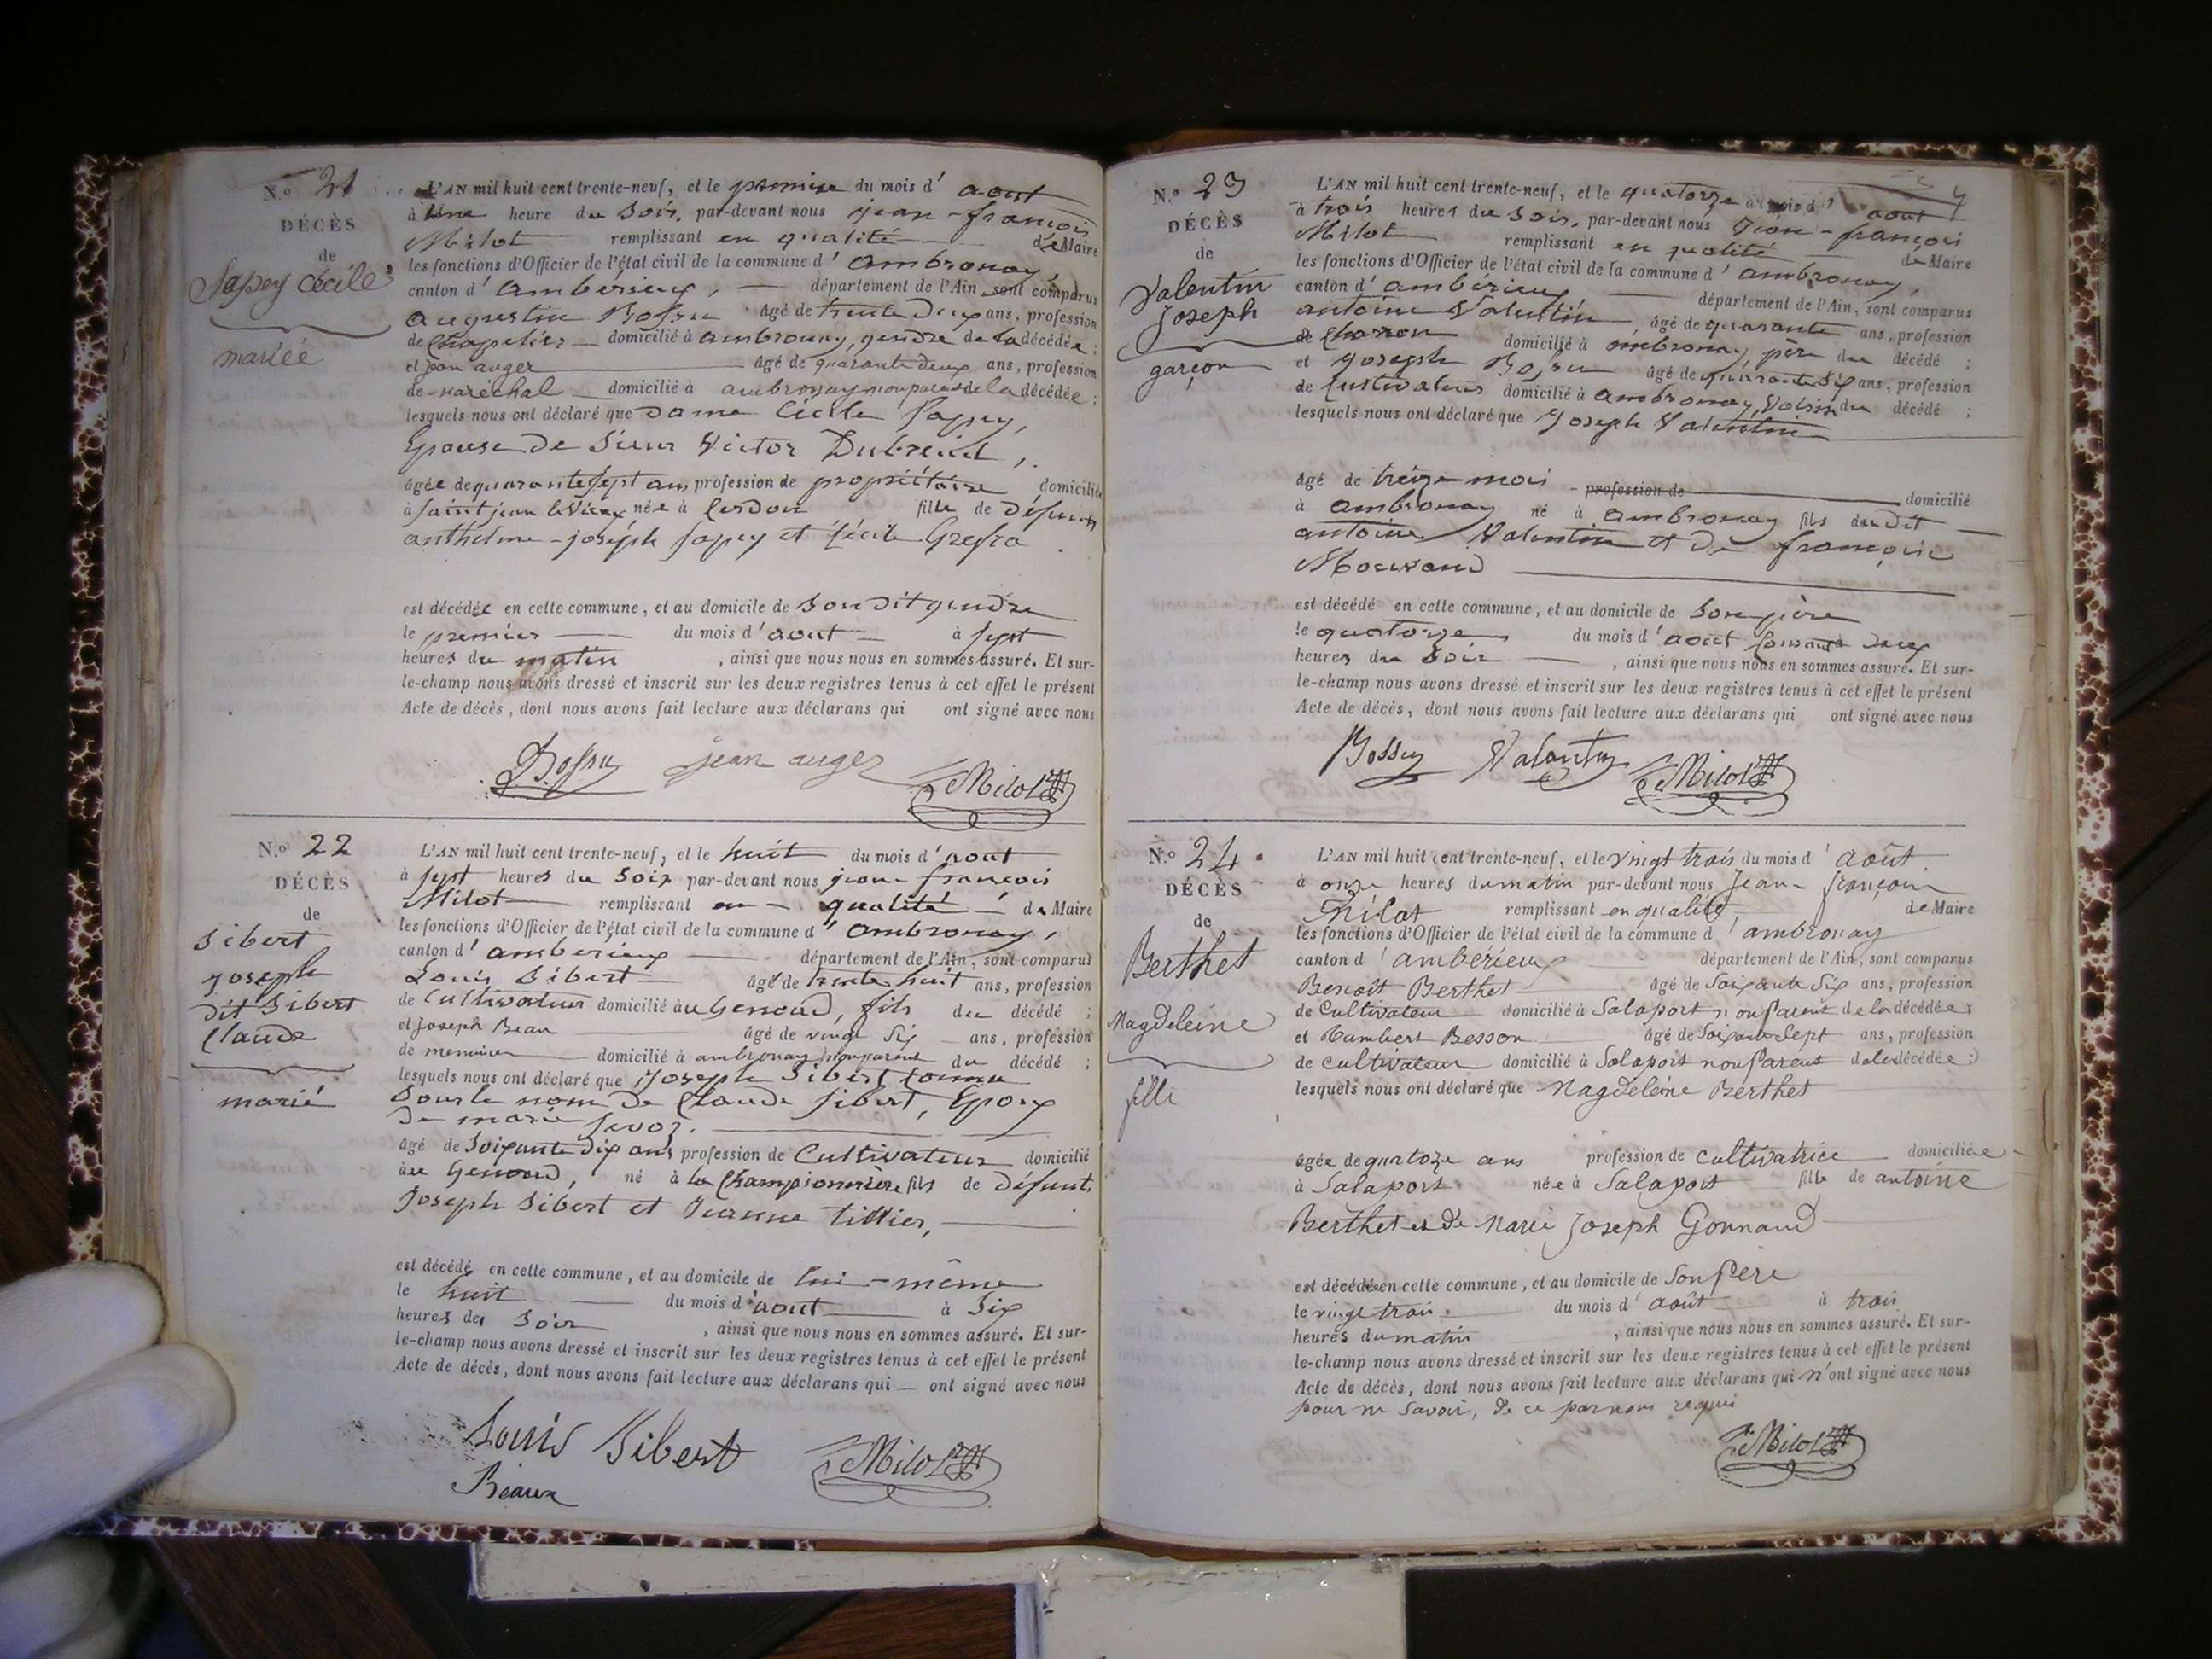 N.o 21
DÉCÈS
de
Sapey Cécile
mariée
L'AN mil huit cent trente-neuf, et le premier du mois d' aout
à une heure du soir, par-devant nous jean-françois
Milot remplissant en qualité de Maire
les fonctions d'Officier de l'état civil de la commune d' ambronay,
canton d' amberieux, département de l'Ain, sont comparus
augustin Bossu âgé de trente deux ans, profession
de chapelier domicilié à ambronay, gendre de la décédée;
et jean auger âgé de quarante deux ans, profession
de maréchal domicilié à ambronay non parent de la décédée;
lesquels nous ont déclaré que Dame Cécile Sapey,
Epouse de Sieur Victor Dubreuil,
âgée de quarante sept ans profession de propriétaire domiciliée
à saint jean le vieux née à Cerdon fille de défunts
anthelme-joséph Sapey et Cécile
est décédée en cette commune, et au domicile de son dit gendre
le premier du mois d'aout à sept
heures du matin, ainsi que nous nous en sommes assuré. Et sur-
le-champ nous avons dressé et inscrit sur les deux registres tenus à cet effet le présent
Acte de décès, dont nous avons fait lecture aux déclarans qui ont signé avec nous
Bossu jean auger Milot
N.o 22
DÉCÈS
de
Sibert
joseph
dit Sibert
Claude
marié
L'AN mil huit cent trente-neuf, et le huit du mois d'aout
à sept heures du soir par-devant nous jean-françois
Milot remplissant en qualité de Maire
les fonctions d'Officier de l'état civil de la commune d' ambronay,
canton d' amberieux département de l'Ain, sont comparus
Louis Sibert âgé de trente huit ans, profession
de Cultivateur domicilié au Genoud, fils du décédé;
et Joseph Beau âgé de vingt six ans, profession
de menuisier domicilié à ambronay non parent du décédé;
lesquels nous ont déclaré que Joseph Sibert connu
sous le nom de Claude Sibert, Epoux
de marie Savoz.
âgé de soixante dix ans profession de Cultivateur domicilié
au Genoud, né à la Championnière fils de défunts
Joseph Sibert et Jeanne Tillier,
est décédé en cette commune, et au domicile de lui-même
le huit du mois d'aout à six
heures du soir, ainsi que nous nous en sommes assuré. Et sur-
le-champ nous avons dressé et inscrit sur les deux registres tenus à cet effet le présent
Acte de décès, dont nous avons fait lecture aux déclarans qui ont signé avec nous
Louis Sibert Milot
Beaux
N.o 23
DÉCÈS
de
Valentin
Joseph
garçon
L'AN mil huit cent trente-neuf, et le quatorze du mois d' aout
à trois heures du soir, par-devant nous Jean-françois
Milot remplissant en qualité de Maire
les fonctions d'Officier de l'état civil de la commune d' ambronay,
canton d' ambérieux département de l'Ain, sont comparus
antoine Valentin âgé de quarante ans, profession
de Charron domicilié à ambronay, père du décédé;
et joseph Bossu âgé de quarante six ans, profession
de Cultivateur domicilié à ambronay, voisin du décédé;
lesquels nous ont déclaré que Joseph Valentin
âgé de treize mois profession de domicilié
à ambronay né à ambronay fils du dit
antoine Valentin et de françoise
est décédé en cette commune, et au domicile de son père
le quatorze du mois d'aout courant à deux
heures du soir, ainsi que nous nous en sommes assuré. Et sur-
le-champ nous avons dressé et inscrit sur les deux registres tenus à cet effet le présent
Acte de décès, dont nous avons fait lecture aux déclarans qui ont signé avec nous
Bossu Valentin Milot
N.o 24
DÉCÈS
de
Berthet
Magdeleine
fille
L'AN mil huit cent trente-neuf, et le vingt trois du mois d' août
à onze heures du matin par-devant nous Jean-françois
Milot remplissant en qualité de Maire
les fonctions d'Officier de l'état civil de la commune d' ambronay
canton d' ambérieux département de l'Ain, sont comparus
Benoît Berthet âgé de soixante six ans, profession
de Cultivateur domicilié à Salaport non parent de la décédée;
et Rambert Besson âgé de soixante sept ans, profession
de cultivateur domicilié à Salaport non parent de la décédée;
lesquels nous ont déclaré que Magdeleine Berthet
âgée de quatorze ans profession de cultivatrice domiciliée
à Salaport née à Salaport fille de antoine
Berthet et de Marie Joseph Gonnand
est décédée en cette commune, et au domicile de son père
le vingt trois du mois d' août à trois
heures du matin, ainsi que nous nous en sommes assuré. Et sur-
le-champ nous avons dressé et inscrit sur les deux registres tenus à cet effet le présent
Acte de décès, dont nous avons fait lecture aux déclarans qui n'ont signé avec nous
pour ne savoir, de ce par nous requis
Milot